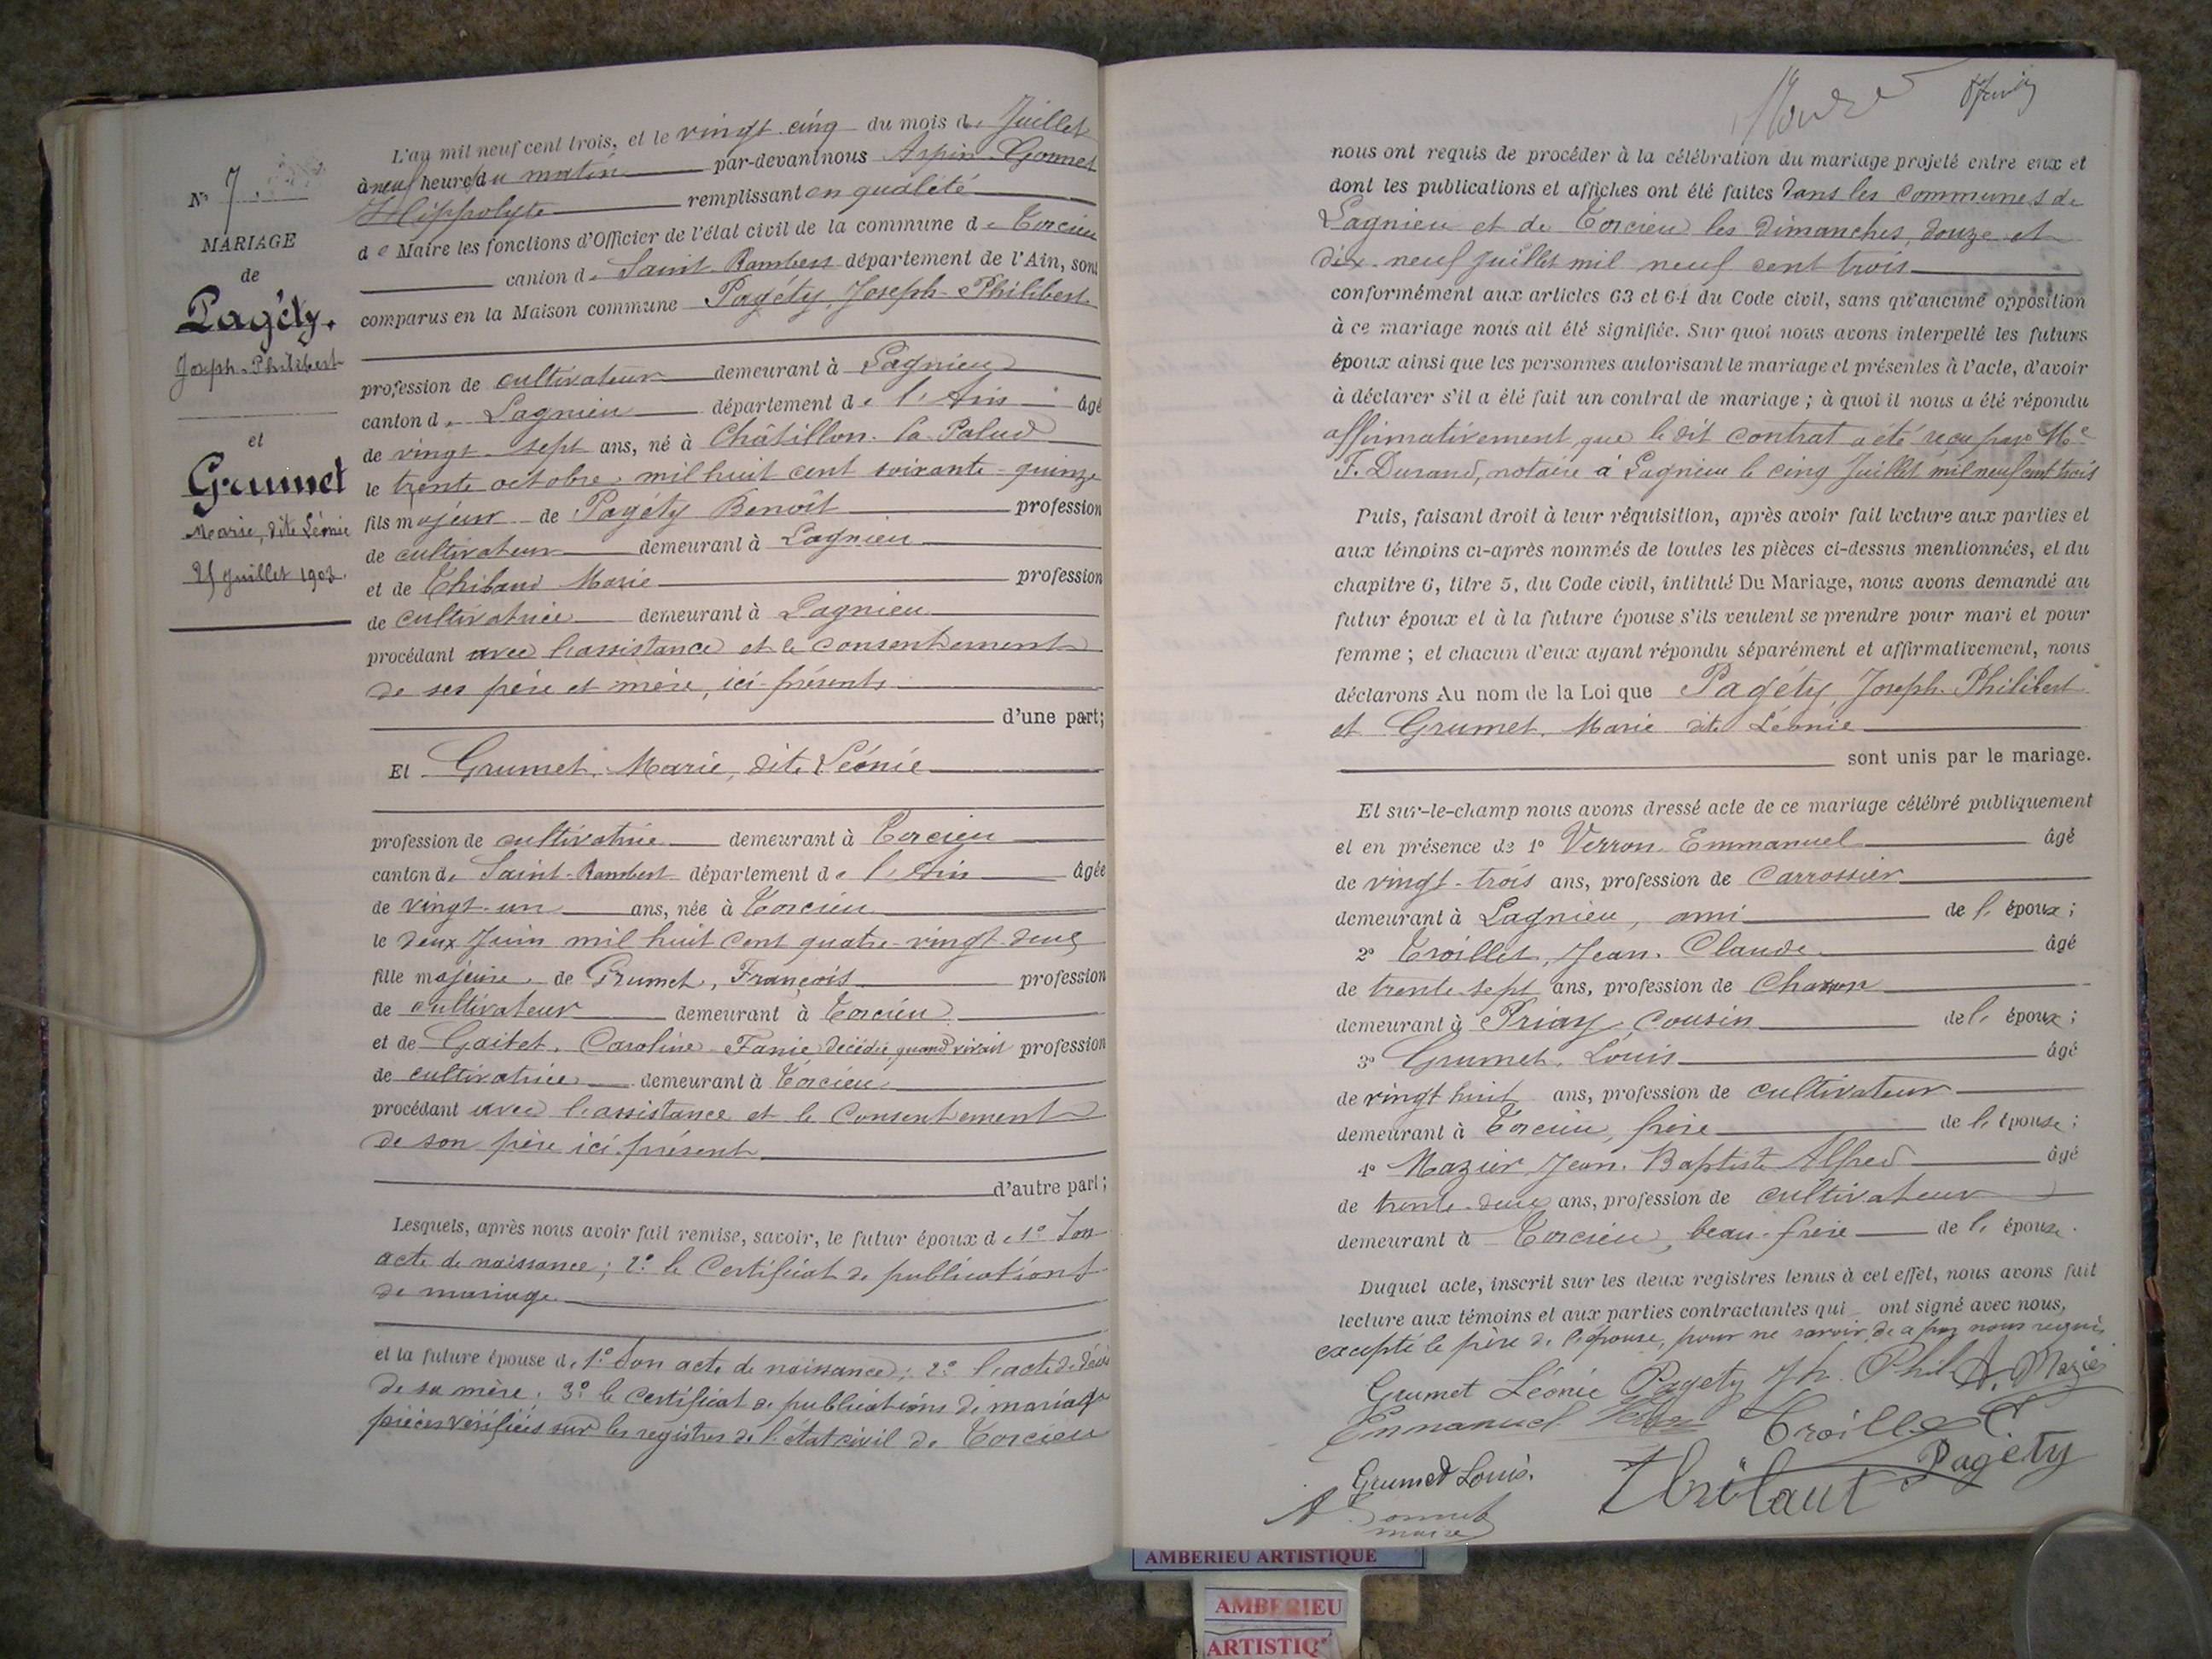 N° 7.
MARIAGE
de
Pagéty.
Joseph-Philibert
et
Grumet
Marie, dite Léonie
25 Juillet 1903.
L'an mil neuf cent trois, et le vingt cinq du mois de Juillet
à neuf heures du matin par-devant nous Arpin-Gonnet
Hippolyte remplissant en qualité
de Maire les fonctions d'Officier de l'état civil de la commune de Torcieu
canton de Saint Rambert département de l'Ain, sont
comparus en la Maison commune Pagéty, Joseph-Philibert
profession de cultivateur demeurant à Lagnieu
canton de Lagnieu département de l'Ain âgé
de vingt-sept ans, né à Châtillon-la-Palud
le trente octobre mil huit cent soixante-quinze
fils majeur de Pagéty Benoît profession
de cultivateur demeurant à Lagnieu
et de Thibaud Marie profession
de cultivatrice demeurant à Lagnieu
procédant avec l'assistance et le consentement
de ses père et mère, ici-présents
d'une part;
Et Grumet, Marie, dite Léonie
profession de cultivatrice demeurant à Torcieu
canton de Saint-Rambert département de l'Ain âgée
de vingt-un ans, née à Torcieu
le deux Juin mil huit cent quatre-vingt-deux
fille majeure de Grumet, François profession
de cultivateur demeurant à Torcieu
et de Gaitet, Caroline Fanie, décédée, quand vivait profession
de cultivatrice demeurant à Torcieu
procédant avec l'assistance et le consentement
de son père ici présent
d'autre part;
Lesquels, après nous avoir fait remise, savoir, le futur époux de 1° Son
acte de naissance; 2° le Certificat de publications
de mariage
et la future épouse de 1° Son acte de naissance; 2° l'acte de décès
de sa mère; 3° le certificat de publications de mariage
pièces vérifiées sur les registres de l'état civil de Torcieu
nous ont requis de procéder à la célébration du mariage projeté entre eux et
dont les publications et affiches ont été faites dans les communes de
Lagnieu et de Torcieu les dimanches, douze et
dix-neuf Juillet mil neuf cent trois
conformément aux articles 63 et 64 du Code civil, sans qu'aucune opposition
à ce mariage nous ait été signifiée. Sur quoi nous avons interpellé les futurs
époux ainsi que les personnes autorisant le mariage et présentes à l'acte, d'avoir
à déclarer s'il a été fait un contrat de mariage; à quoi il nous a été répondu
affirmativement, que le dit contrat a été reçu par Me
F. Durand, notaire à Lagnieu le cinq Juillet mil neuf cent trois
Puis, faisant droit à leur réquisition, après avoir fait lecture aux parties et
aux témoins ci-après nommés de toutes les pièces ci-dessus mentionnées, et du
chapitre 6, titre 5, du Code civil, intitulé Du Mariage, nous avons demandé au
futur époux et à la future épouse s'ils veulent se prendre pour mari et pour
femme; et chacun d'eux ayant répondu séparément et affirmativement, nous
déclarons Au nom de la Loi que Pagéty, Joseph-Philibert
et Grumet, Marie dite Léonie
sont unis par le mariage.
Et sur-le-champ nous avons dressé acte de ce mariage célébré publiquement
et en présence de 1° Verron Emmanuel âgé
de vingt-trois ans, profession de Carrossier
demeurant à Lagnieu, ami de l' époux;
2° Troillet, Jean-Claude âgé
de trente-sept ans, profession de Charron
demeurant à Priay, cousin de l' époux;
3° Grumet, Louis âgé
de vingt huit ans, profession de cultivateur
demeurant à Torcieu, frère de l' épouse;
4° Mazier, Jean-Baptiste Alfred âgé
de trente-deux ans, profession de cultivateur
demeurant à Torcieu, beau-frère de l' épouse.
Duquel acte, inscrit sur les deux registres tenus à cet effet, nous avons fait
lecture aux témoins et aux parties contractantes qui ont signé avec nous,
excepté le père de l'épouse, pour ne savoir, de ce par nous requis
Grumet Léonie Pagéty Jh. Phil A. Mazier
Emmanuel Troillet
Grumet Louis. Thibaut Pagéty
A. Gonnet
maire
AMBERIEU ARTISTIQUE
AMBERIEU
ARTISTIQ